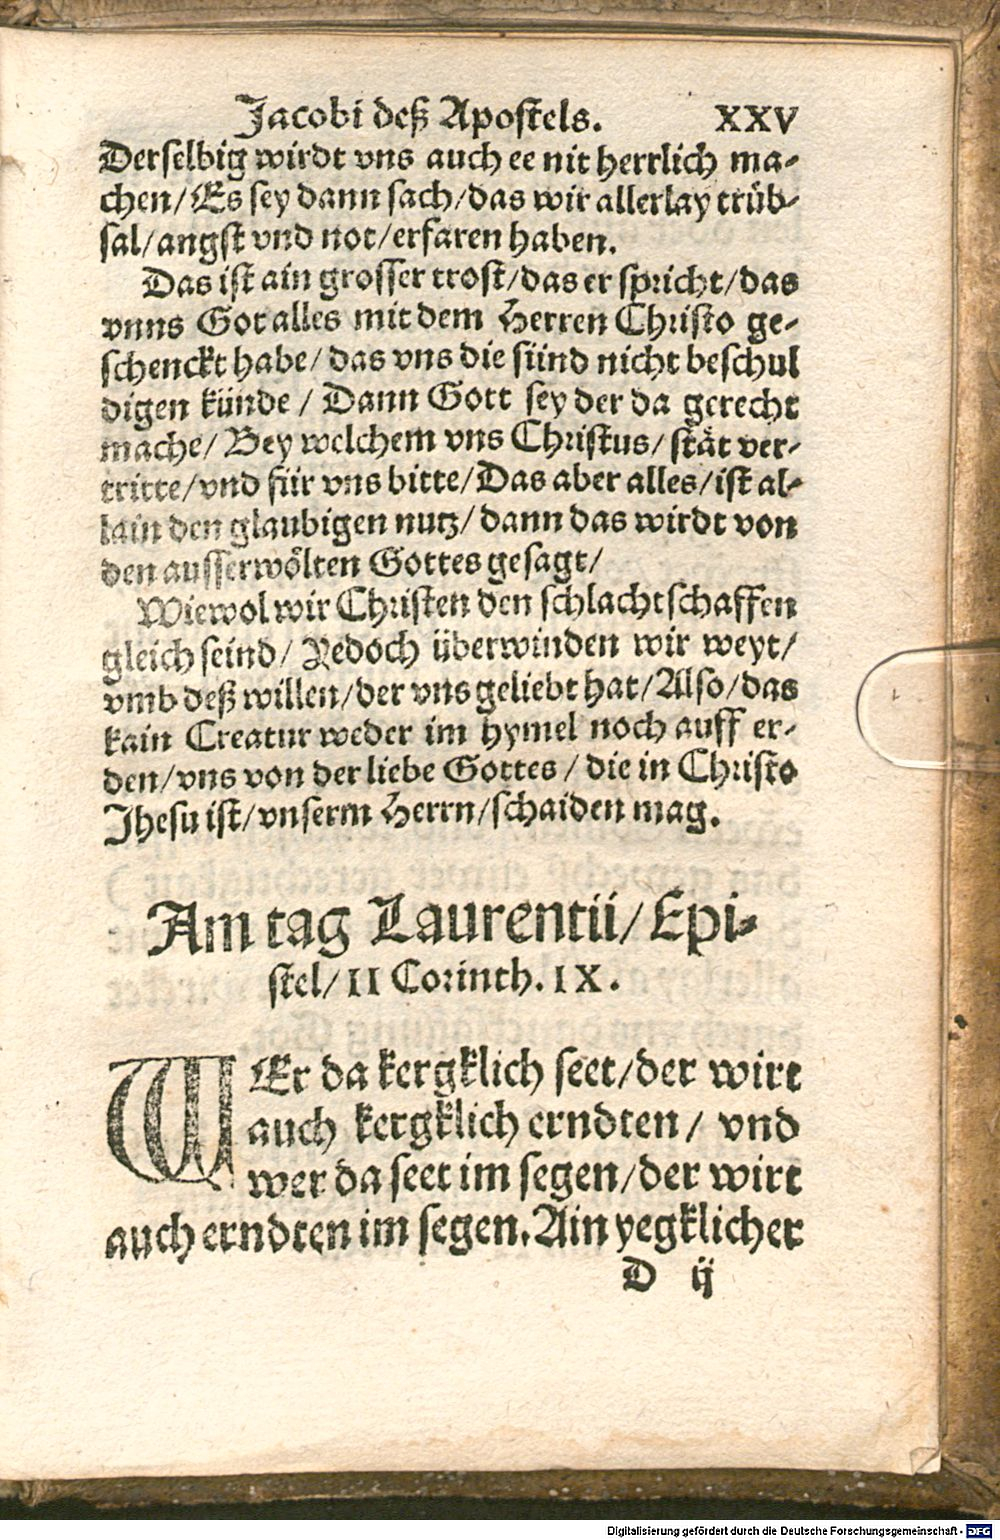 Jacobi deß Apostels. XXV
Derselbig wirdt vns auch ee nit herrlich ma-
chen/ Es sey dann sach/das wir allerlay trüb-
sal/angst vnd not/erfaren haben.
Das ist ain grosser trost/das er spricht/das
vnns Got alles mit dem Herren Christo ge-
schenckt habe/ das vns die sünd nicht beschul
digen künde / Dann Gott sey der da gerecht
mache/ Bey welchem vns Christus/ stät ver-
tritte/vnd für vns bitte/Das aber alles/ist al-
lain den glaubigen nutz/ dann das wirdt von
den ausserwölten Gottes gesagt/
Wiewol wir Christen den schlachtschaffen
gleich seind/ Yedoch überwinden wir weyt/
vmb deß willen/der vns geliebt hat/Also/das
kain Creatur weder im hymel noch auff er-
den/vns von der liebe Gottes / die in Christo
Jhesu ist/vnserm Herrn/schaiden mag.
Am tag Laurentii/ Epi-
stel/ II Corinth. IX.
WEr da kergklich seet/der wirt
auch kergklich erndten/ vnd
wer da seet im segen/der wirt
auch erndten im segen. Ain yegklicher
D ij
Digitalisierung gefördert durch die Deutsche Forschungsgemeinschaft - DFG